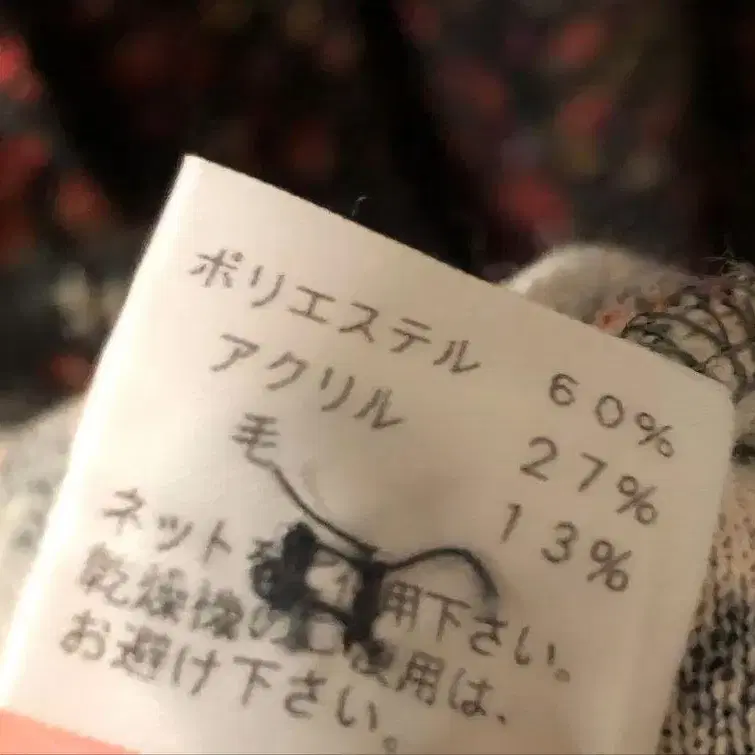 ポリエステル 60%
アクリル 27%
毛 13%
ネットを 用下さい。
乾燥機のご使用は、
お避け下さい。